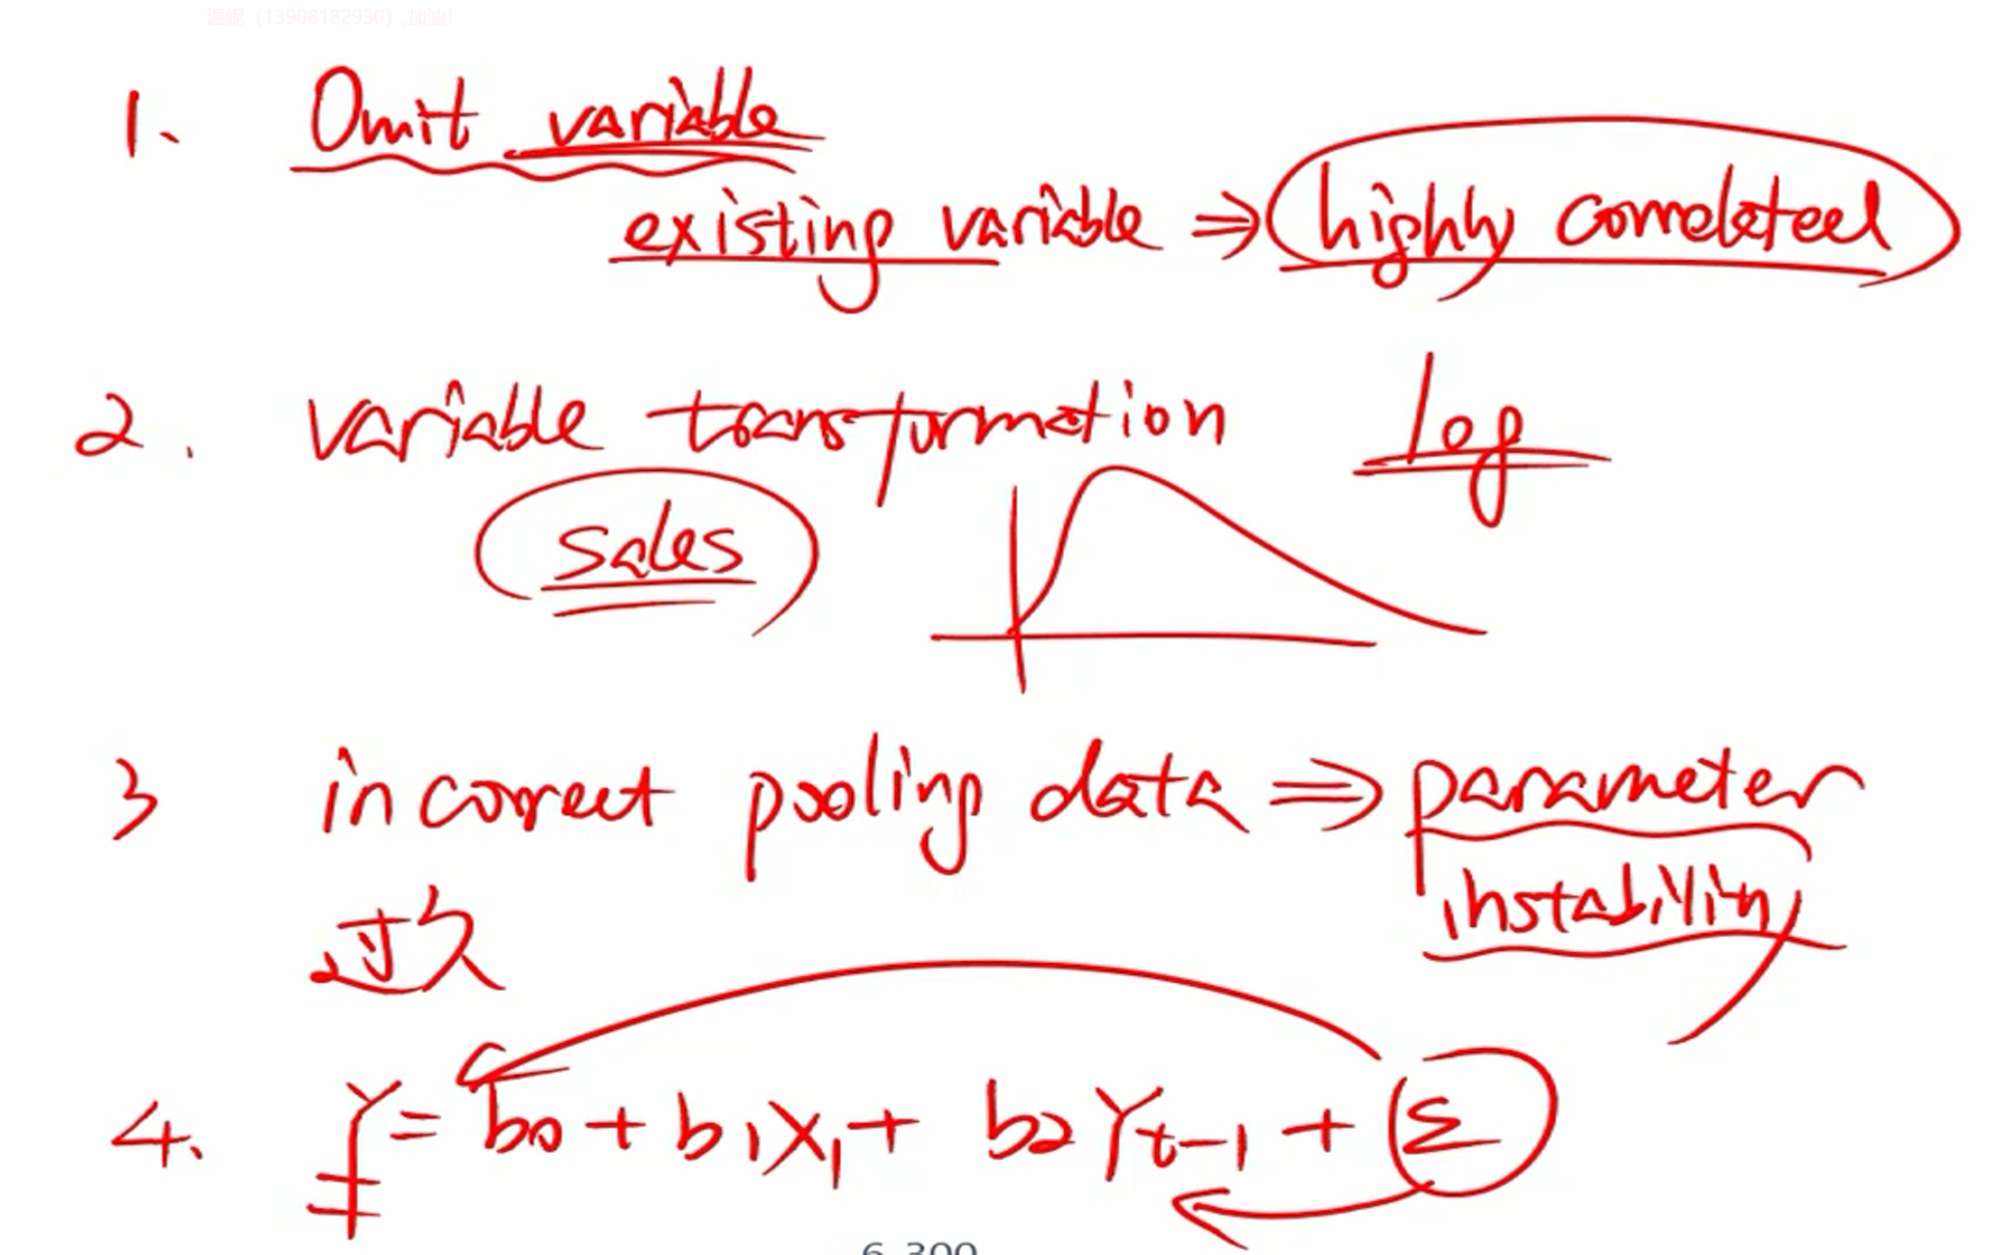 1. Omit variable
existing variable ⇒ highly correlated
2. variable transformation log
sales
3 incorrect pooling data ⇒ parameter
instability
过久
4. Y = b0 + b1X1 + b2Yt-1 + Σ
6-300